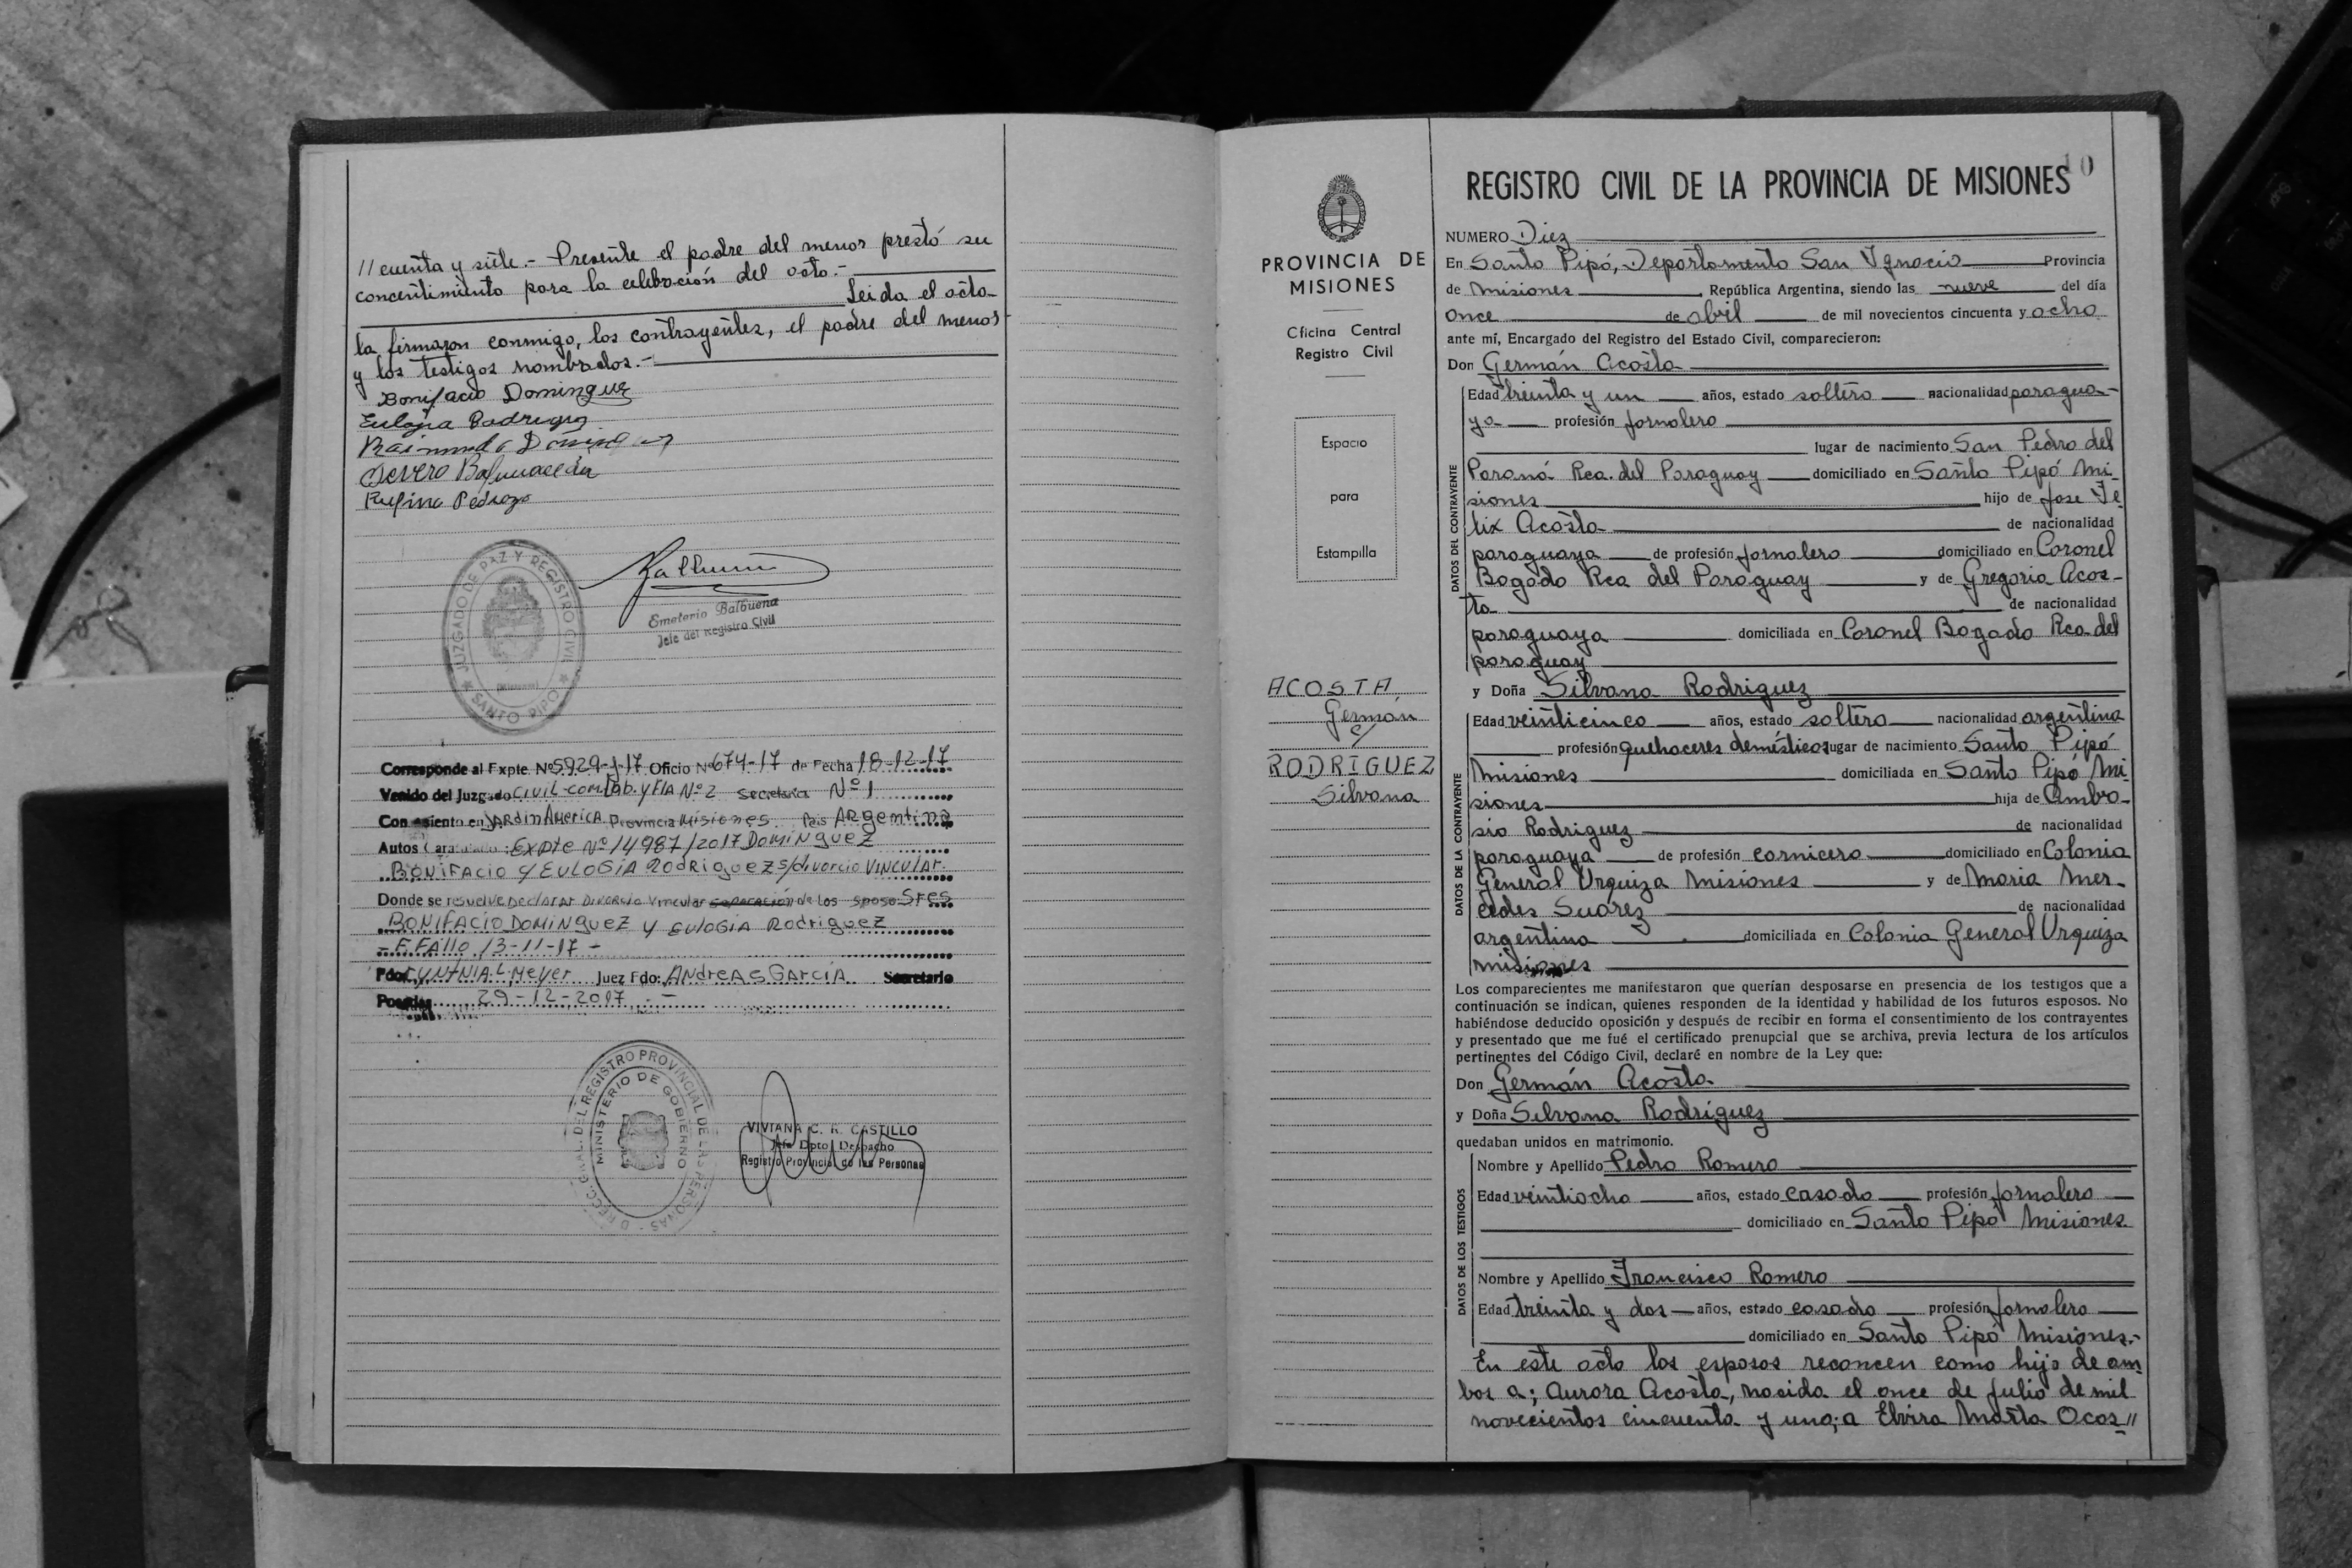 // cuenta y siete.- Presente el padre del menor prestó su
concentimiento para la celebración del acto.-
Leida el acta
la firmaron conmigo, los contrayentes, el padre del menor
y los testigos nombrados.-
Bonifacio Dominguez
Eulogia Rodriguez
Raimundo Dominguez
Severo Balmaceda
Rufino Pedrozo
JUZGADO DE PAZ Y REGISTRO CIVIL
(Misiones)
★ SANTO PIPÓ ★
Emeterio Balbuena
Jefe del Registro Civil
Corresponde al Expte Nº 5929-J-17 Oficio Nº 674-17 de Fecha 18-12-17
Venido del Juzgado CIVIL-COM. Lab. y FIA Nº 2 Secretaria Nº 1
Con asiento en JARDIN AMERICA Provincia Misiones Pais ARgentina
Autos Caratulado: Expte Nº 14987/2017 Dominguez
BONIFACIO Y EULOGIA RODRIGUEZ S/divorcio VINCULAR.
Donde se resuelve DECLARAR Divorcio Vincular separación de los sposo Sres
BONIFACIO DOMINGUEZ Y EULOGIA RODRIGUEZ
- F. FAllo 13-11-17 -
Fdo: CYNTNIA. L. MEYER Juez Fdo: ANDREAS GARCIA Secretario
Posadas 29-12-2017 . -
DIRECC. GRAL. DEL REGISTRO PROVINCIAL DE LAS PERSONAS
MINISTERIO DE GOBIERNO
VIVIANA C. R. CASTILLO
Jefe Dpto Despacho
Registro Provincial de las Personas
PROVINCIA DE
MISIONES
Oficina Central
Registro Civil
Espacio
para
Estampilla
ACOSTA,
Germán
c/
RODRIGUEZ
Silvana
10
REGISTRO CIVIL DE LA PROVINCIA DE MISIONES
NUMERO Diez
En Santo Pipó, Departamento San Ignacio Provincia
de Misiones, República Argentina, siendo las nueve del día
once de abril de mil novecientos cincuenta y ocho
ante mí, Encargado del Registro del Estado Civil, comparecieron:
Don Germán Acosta
DATOS DEL CONTRAYENTE
Edad treinta y un años, estado soltero nacionalidad paragua-
ya profesión jornalero
lugar de nacimiento San Pedro del
Paraná Rca. del Paraguay domiciliado en Santo Pipó Mi-
siones hijo de Jose Fe
lix Acosta de nacionalidad
paraguaya de profesión jornalero domiciliado en Coronel
Bogado Rca del Paraguay y de Gregoria Acos-
ta de nacionalidad
paraguaya domiciliada en Coronel Bogado Rca del
paraguay
y Doña Silvana Rodriguez
DATOS DE LA CONTRAYENTE
Edad veinticinco años, estado soltera nacionalidad argentina
profesión quehaceres demésticos lugar de nacimiento Santo Pipó
Misiones domiciliada en Santo Pipó Mi-
siones hija de Ambro-
sio Rodriguez de nacionalidad
paraguaya de profesión carnicero domiciliado en Colonia
General Urquiza Misiones y de Maria Mer-
cedes Suarez de nacionalidad
argentina domiciliada en Colonia General Urquiza
misiones
Los comparecientes me manifestaron que querían desposarse en presencia de los testigos que a
continuación se indican, quienes responden de la identidad y habilidad de los futuros esposos. No
habiéndose deducido oposición y después de recibir en forma el consentimiento de los contrayentes
y presentado que me fué el certificado prenupcial que se archiva, previa lectura de los artículos
pertinentes del Código Civil, declaré en nombre de la Ley que:
Don Germán Acosta
y Doña Silvana Rodriguez
quedaban unidos en matrimonio.
DATOS DE LOS TESTIGOS
Nombre y Apellido Pedro Romero
Edad veintiocho años, estado casado profesión jornalero
domiciliado en Santo Pipó Misiones
Nombre y Apellido Francisco Romero
Edad treinta y dos años, estado casado profesión jornalero
domiciliado en Santo Pipó Misiones.-
En este acto los esposos reconcen como hijo de am
bos a; Aurora Acosta, nacida el once de julio de mil
novecientos cincuenta y uno; a Elvira Marta Acos//